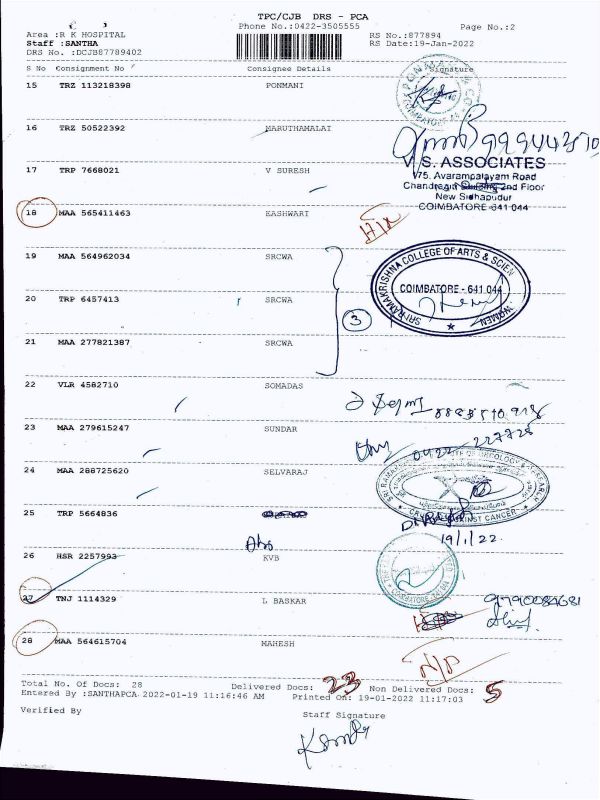 TPC/CJB DRS - PCA
Phone No.:0422-3505555
Page No.:2
Area :R K HOSPITAL
RS No.:877894
Staff :SANTHA
RS Date:19-Jan-2022
DRS No. :DCJB87789402
S No Consignment No Consignee Details Signature
15 TRZ 113218398 PONMANI
COIMBATORE
16 TRZ 50522392 MARUTHAMALAI
V.S. ASSOCIATES
17 TRP 7668021 V SURESH
175, Avarampalayam Road
2nd Floor
New Sidhapudur
COIMBATORE-641 044
18 MAA 565411463 EASHWARI
19 MAA 564962034 SRCWA
SRI RAMAKRISHNA COLLEGE OF ARTS & SCIEN
COIMBATORE - 641 044
WOMEN
20 TRP 6457413 SRCWA
3
21 MAA 277821387 SRCWA
22 VLR 4582710 SOMADAS
23 MAA 279615247 SUNDAR
0422 227725
24 MAA 288725620 SELVARAJ
AGAINST CANCER
25 TRP 5664836
19/1/22
26 HSR 2257993 KVB
COIMBATORE
27 TNJ 1114329 L BASKAR
28 MAA 564615704 MAHESH
N/D
Total No. Of Docs: 28 Delivered Docs: 23 Non Delivered Docs: 5
Entered By :SANTHAPCA 2022-01-19 11:16:46 AM Printed On: 19-01-2022 11:17:03
Verified By Staff Signature